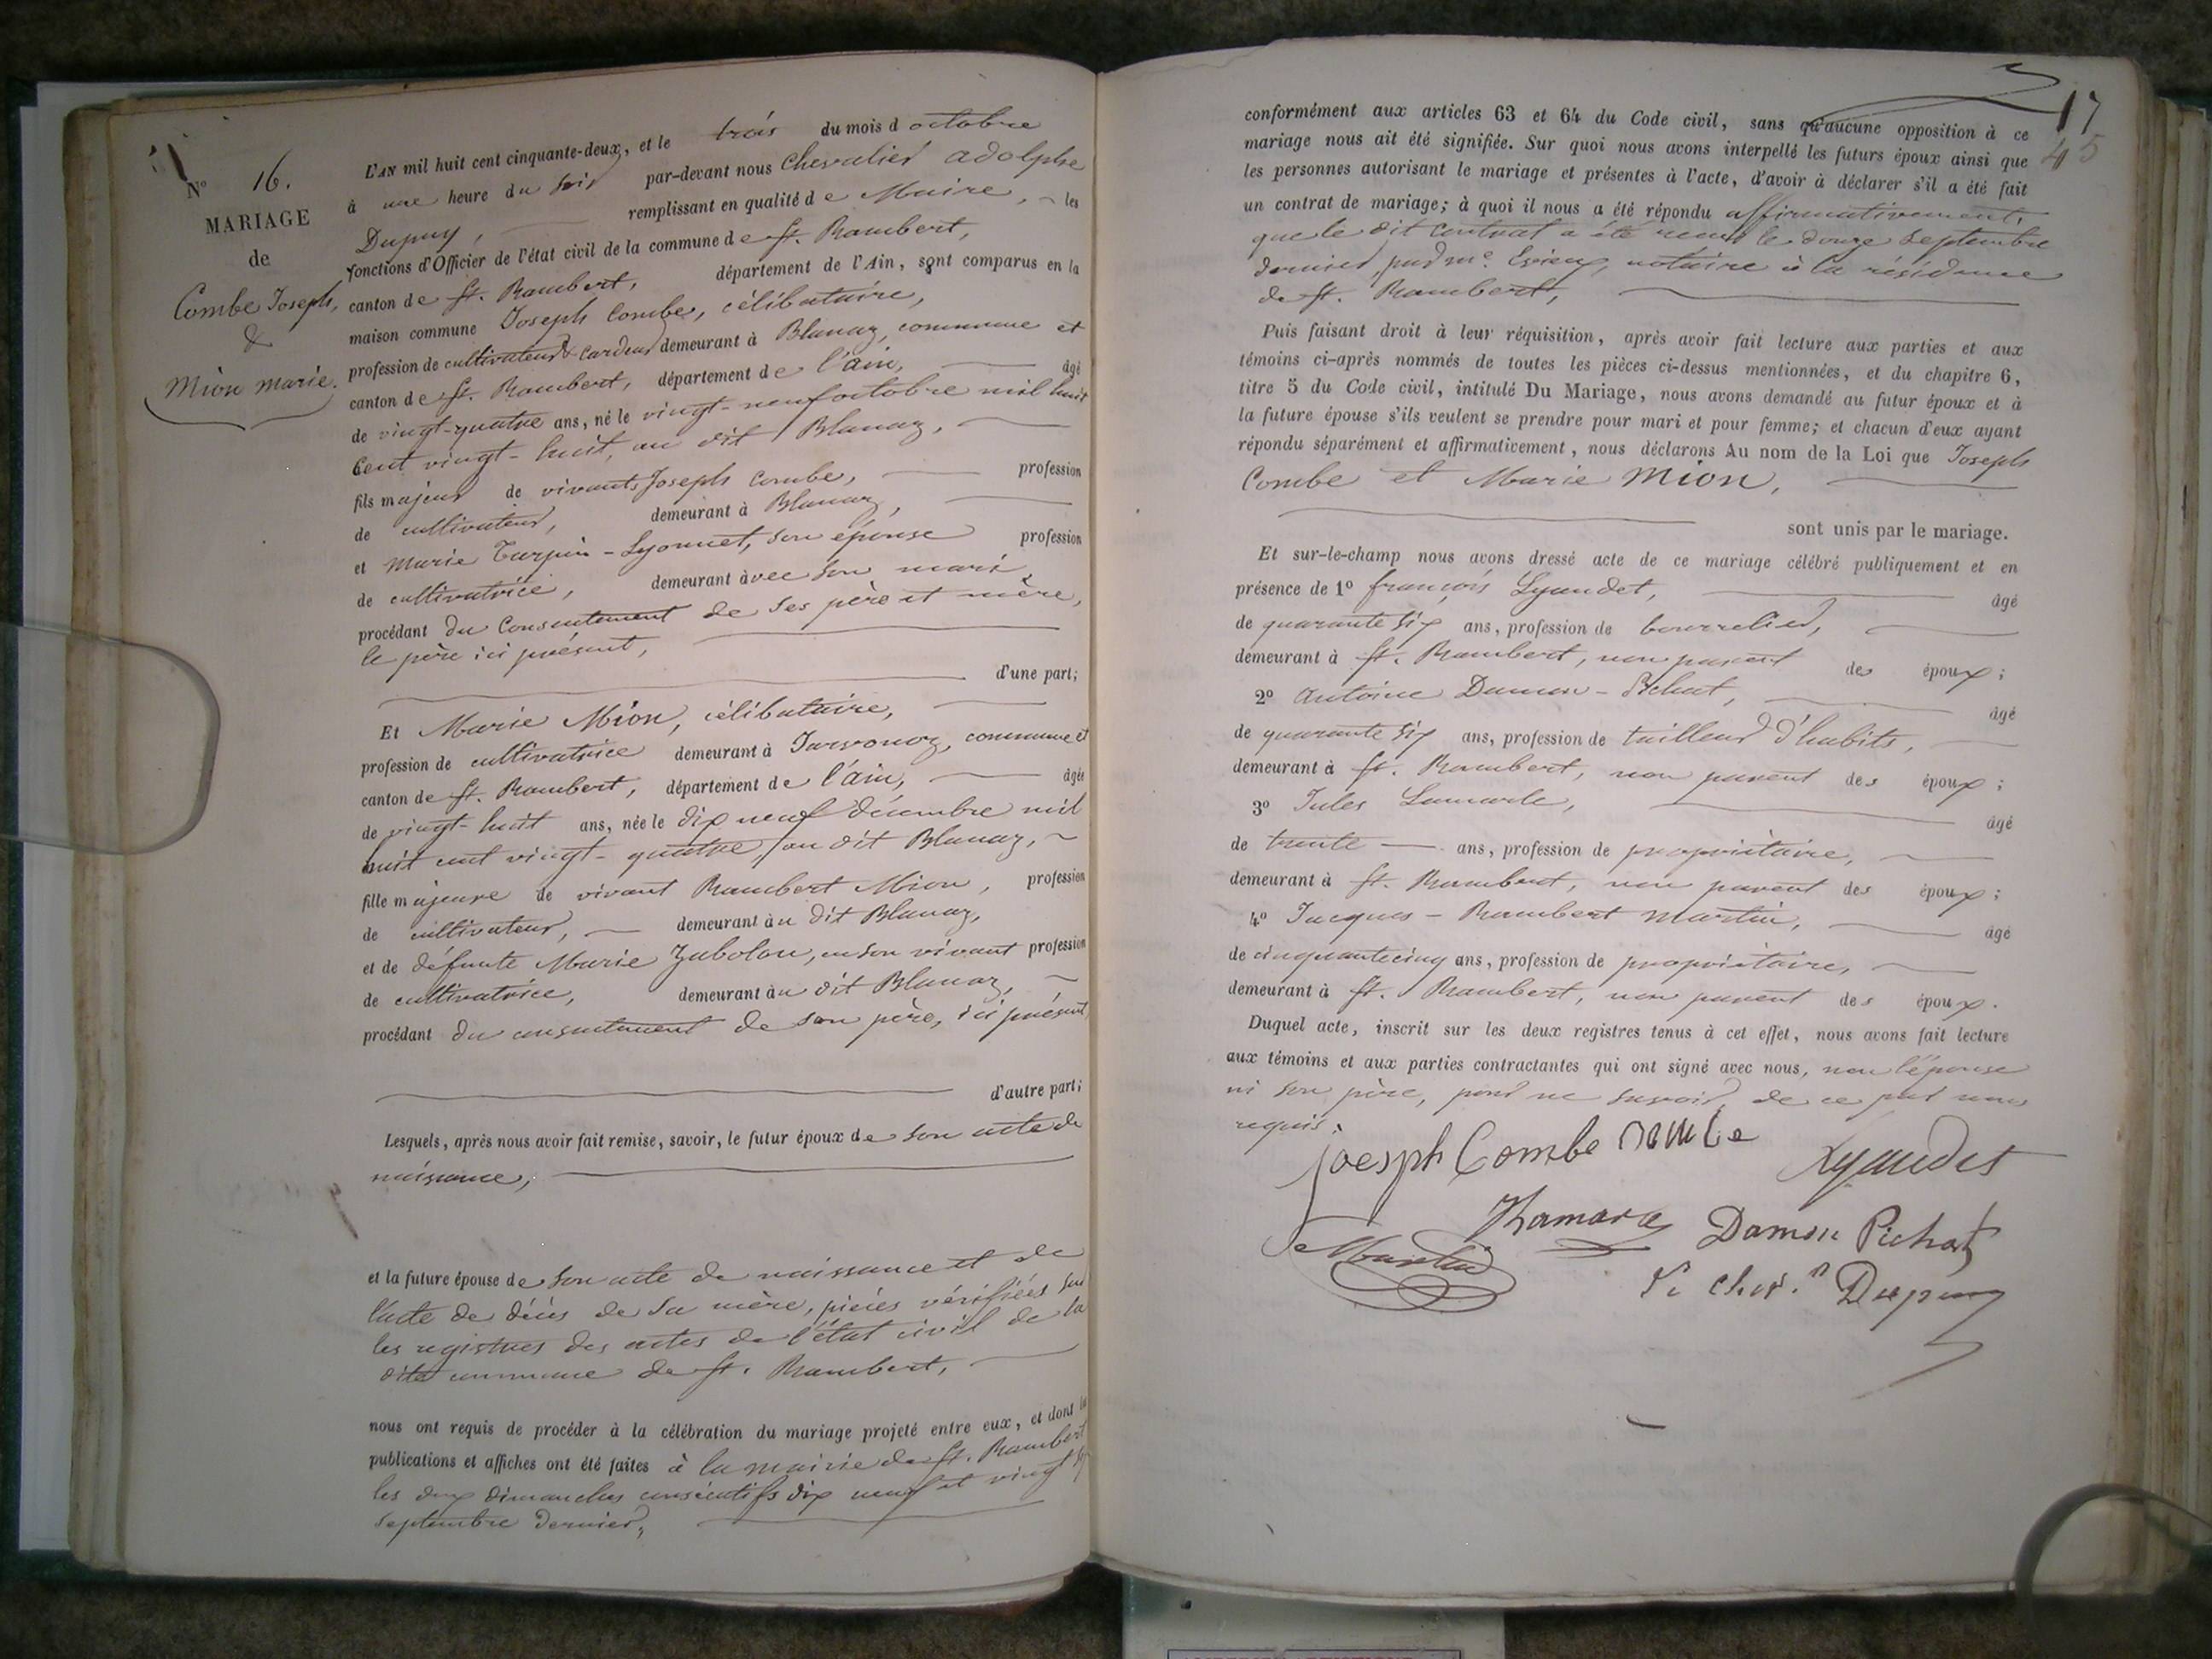 N° 16.
MARIAGE
de
Combe Joseph,
&
Mion Marie.
L'AN mil huit cent cinquante-deux, et le trois du mois d octobre
à une heure du soir par-devant nous Chevalier Adolphe
Dupuy, remplissant en qualité de Maire, les
fonctions d'Officier de l'état civil de la commune de St. Rambert,
canton de St. Rambert, département de l'Ain, sont comparus en la
maison commune Joseph Combe, célibataire,
profession de cultivateur & cardeur demeurant à Blanaz, commune et
canton de St. Rambert, département de l'ain, âgé
de vingt-quatre ans, né le vingt-neuf octobre mil huit
cent vingt-huit, au dit Blanaz,
fils majeur de vivants Joseph Combe, profession
de cultivateur, demeurant à Blanaz,
et Marie Turpin-Lyonnet, son épouse profession
de cultivatrice, demeurant avec son mari,
procédant du consentement de ses père et mère,
le père ici présent,
d'une part;
Et Marie Mion, célibataire,
profession de cultivatrice demeurant à Javornoz, commune et
canton de St. Rambert, département de l'ain, âgée
de vingt-huit ans, née le dix neuf décembre mil
huit cent vingt-quatre, au dit Blanaz,
fille majeure de vivant Rambert Mion, profession
de cultivateur, demeurant au dit Blanaz,
et de défunte Marie Zabolon, en son vivant profession
de cultivatrice, demeurant au dit Blanaz,
procédant du consentement de son père, ici présent,
d'autre part;
Lesquels, après nous avoir fait remise, savoir, le futur époux de son acte de
naissance,
et la future épouse de son acte de naissance et de
l'acte de décès de sa mère, pièces vérifiées sur
les registres des actes de l'état civil de la
dite commune de St. Rambert,
nous ont requis de procéder à la célébration du mariage projeté entre eux, et dont les
publications et affiches ont été faites à la mairie de St. Rambert
les deux dimanches consécutifs dix neuf et vingt six
septembre dernier,
17
45
conformément aux articles 63 et 64 du Code civil, sans qu'aucune opposition à ce
mariage nous ait été signifiée. Sur quoi nous avons interpellé les futurs époux ainsi que
les personnes autorisant le mariage et présentes à l'acte, d'avoir à déclarer s'il a été fait
un contrat de mariage; à quoi il nous a été répondu affirmativement,
que le dit contrat a été reçu le douze septembre
dernier, par Me. notaire à la résidence
de St. Rambert,
Puis faisant droit à leur réquisition, après avoir fait lecture aux parties et aux
témoins ci-après nommés de toutes les pièces ci-dessus mentionnées, et du chapitre 6,
titre 5 du Code civil, intitulé Du Mariage, nous avons demandé au futur époux et à
la future épouse s'ils veulent se prendre pour mari et pour femme; et chacun d'eux ayant
répondu séparément et affirmativement, nous déclarons Au nom de la Loi que Joseph
Combe et Marie Mion,
sont unis par le mariage.
Et sur-le-champ nous avons dressé acte de ce mariage célébré publiquement et en
présence de 1° françois Lyaudet, âgé
de quarante six ans, profession de bourrelier,
demeurant à St. Rambert, non parent des époux;
2° Antoine Damon-Pichat, âgé
de quarante six ans, profession de tailleur d'habits,
demeurant à St. Rambert, non parent des époux;
3° Jules Lamarle, âgé
de trente ans, profession de propriétaire,
demeurant à St. Rambert, non parent des époux;
4° Jacques-Rambert Martin, âgé
de cinquante cinq ans, profession de propriétaire,
demeurant à St. Rambert, non parent des époux.
Duquel acte, inscrit sur les deux registres tenus à cet effet, nous avons fait lecture
aux témoins et aux parties contractantes qui ont signé avec nous, non l'épouse
ni son père, pour ne savoir, de ce par nous
requis.
joesph Combe Lyaudet
Damon Pichat
Martin
Dupuy